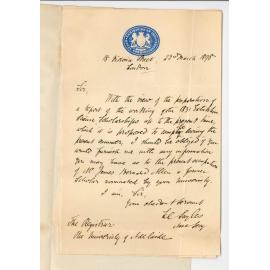 18 Victoria Street, 23rd March 1898
London
Sir,
With the view of the preparation of
a report of the working of the 1851 Exhibition
Science Scholarships up to the present time,
which it is proposed to during
the present summer, I should be obliged if you
would furnish me with any information
you may have as to the present occupation
of Mr James Bernard Allen a former
Scholar nominated by your University
I am, Sir,
Your obedient Servant
The Registrar
The University of Adelaide